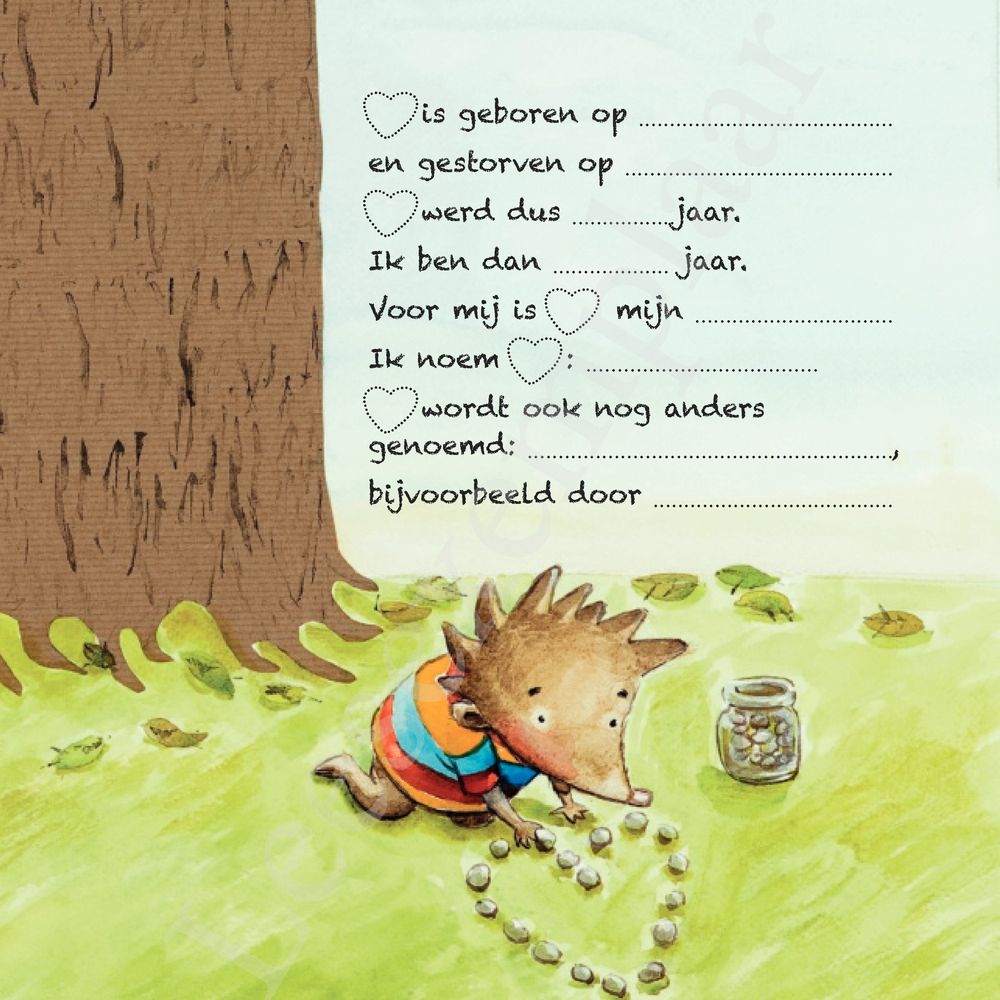 is geboren op ..............................
en gestorven op ..............................
werd dus ............jaar.
Ik ben dan ............ jaar.
Voor mij is mijn ..............................
Ik noem : ..............................
wordt ook nog anders
genoemd: ..............................,
bijvoorbeeld door ..............................
Leesexemplaar